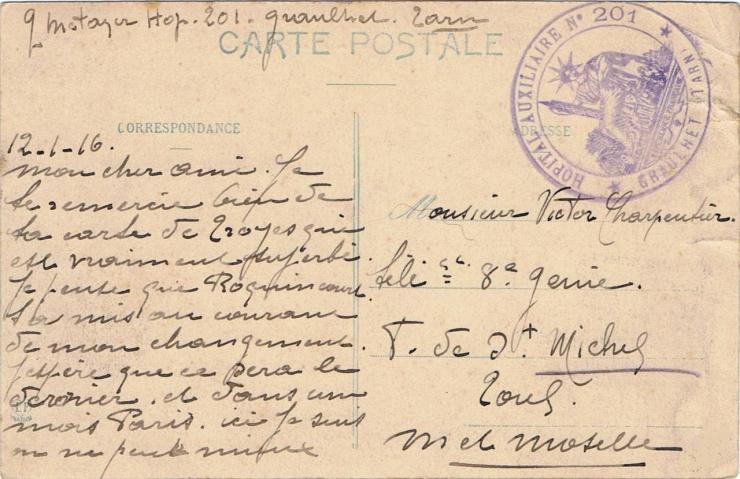 Metayer Hop. 201. Graulhet. Tarn
CARTE POSTALE
HOPITAL AUXILIAIRE N° 201
GRAULHET (TARN)
CORRESPONDANCE
ADRESSE
12-1-16.
mon cher ami. Je
te remercie bien de
ta carte de Troyes qui
est vraiment superbe.
Je pense que Roquincourt
t'a mis au courant
de mon changement.
J'espère que ce sera le
dernier. et dans un
mois Paris. ici je suis
on ne peut mieux
Monsieur Victor Charpentier.
8e Genie.
F. de St Michel
Toul.
M et Moselle